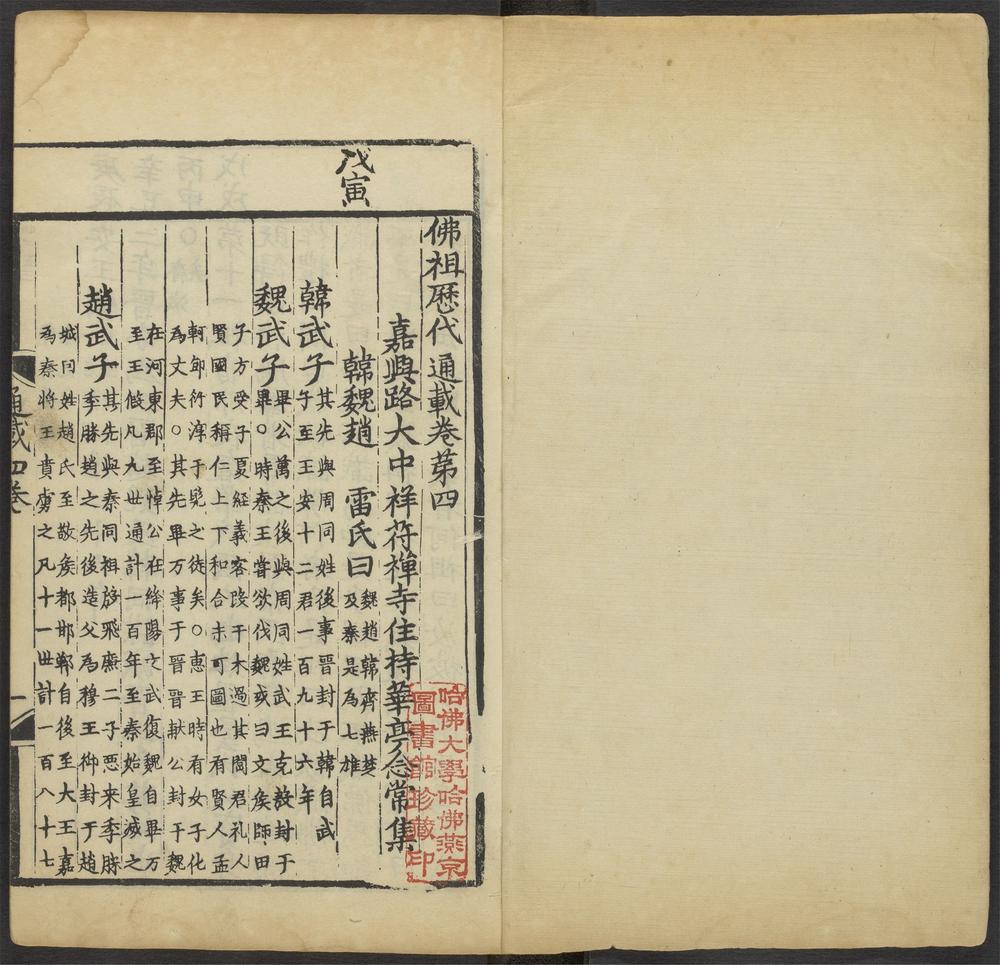 戊寅
佛祖歷代通載卷第四
嘉興路大中祥符禪寺住持華亭念常集
韓魏趙　雷氏曰
魏趙韓齊燕楚
及秦是為七雄
韓武子
其先與周同姓後事晉封于韓自武
子至王安十二君一百九十六年
魏武子
畢公萬之後與周同姓武王克殺封于
畢〇時秦王嘗欲伐魏或曰文矦師田
子方受子夏經義客段干木過其閭君礼人
賢國民稱仁上下和合未可圖也有賢人孟
軻鄒衍淳于髡之徒矣〇惠王時有女子化
為丈夫〇其先畢万事于晉晉献公封于魏
在河東郡至悼公在絳陽文武復魏自畢万
至王假凡九世通計一百年至秦始皇滅之
趙武子
其先與秦同祖於飛廉二子惡来季勝
季勝趙之先後造父為穆王御封于趙
城囙姓趙氏至敬矦都邯鄲自後至大王嘉
為秦將王賁虜之凡十一世計一百八十七
通載四卷
一
哈佛大學哈佛燕京
圖書館珍藏印